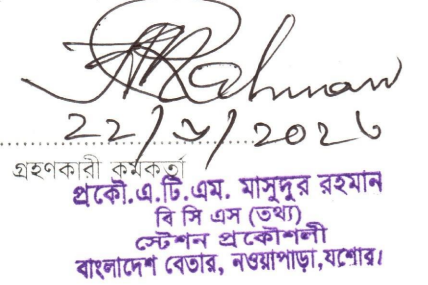 Rahman
গ্রহণকারী কর্মকর্তা
প্রকৌ.এ.টি.এম. মাসুদুর রহমান
বি সি এস (তথ্য)
স্টেশন প্রকৌশলী
বাংলাদেশ বেতার, নওয়াপাড়া,যশোর।